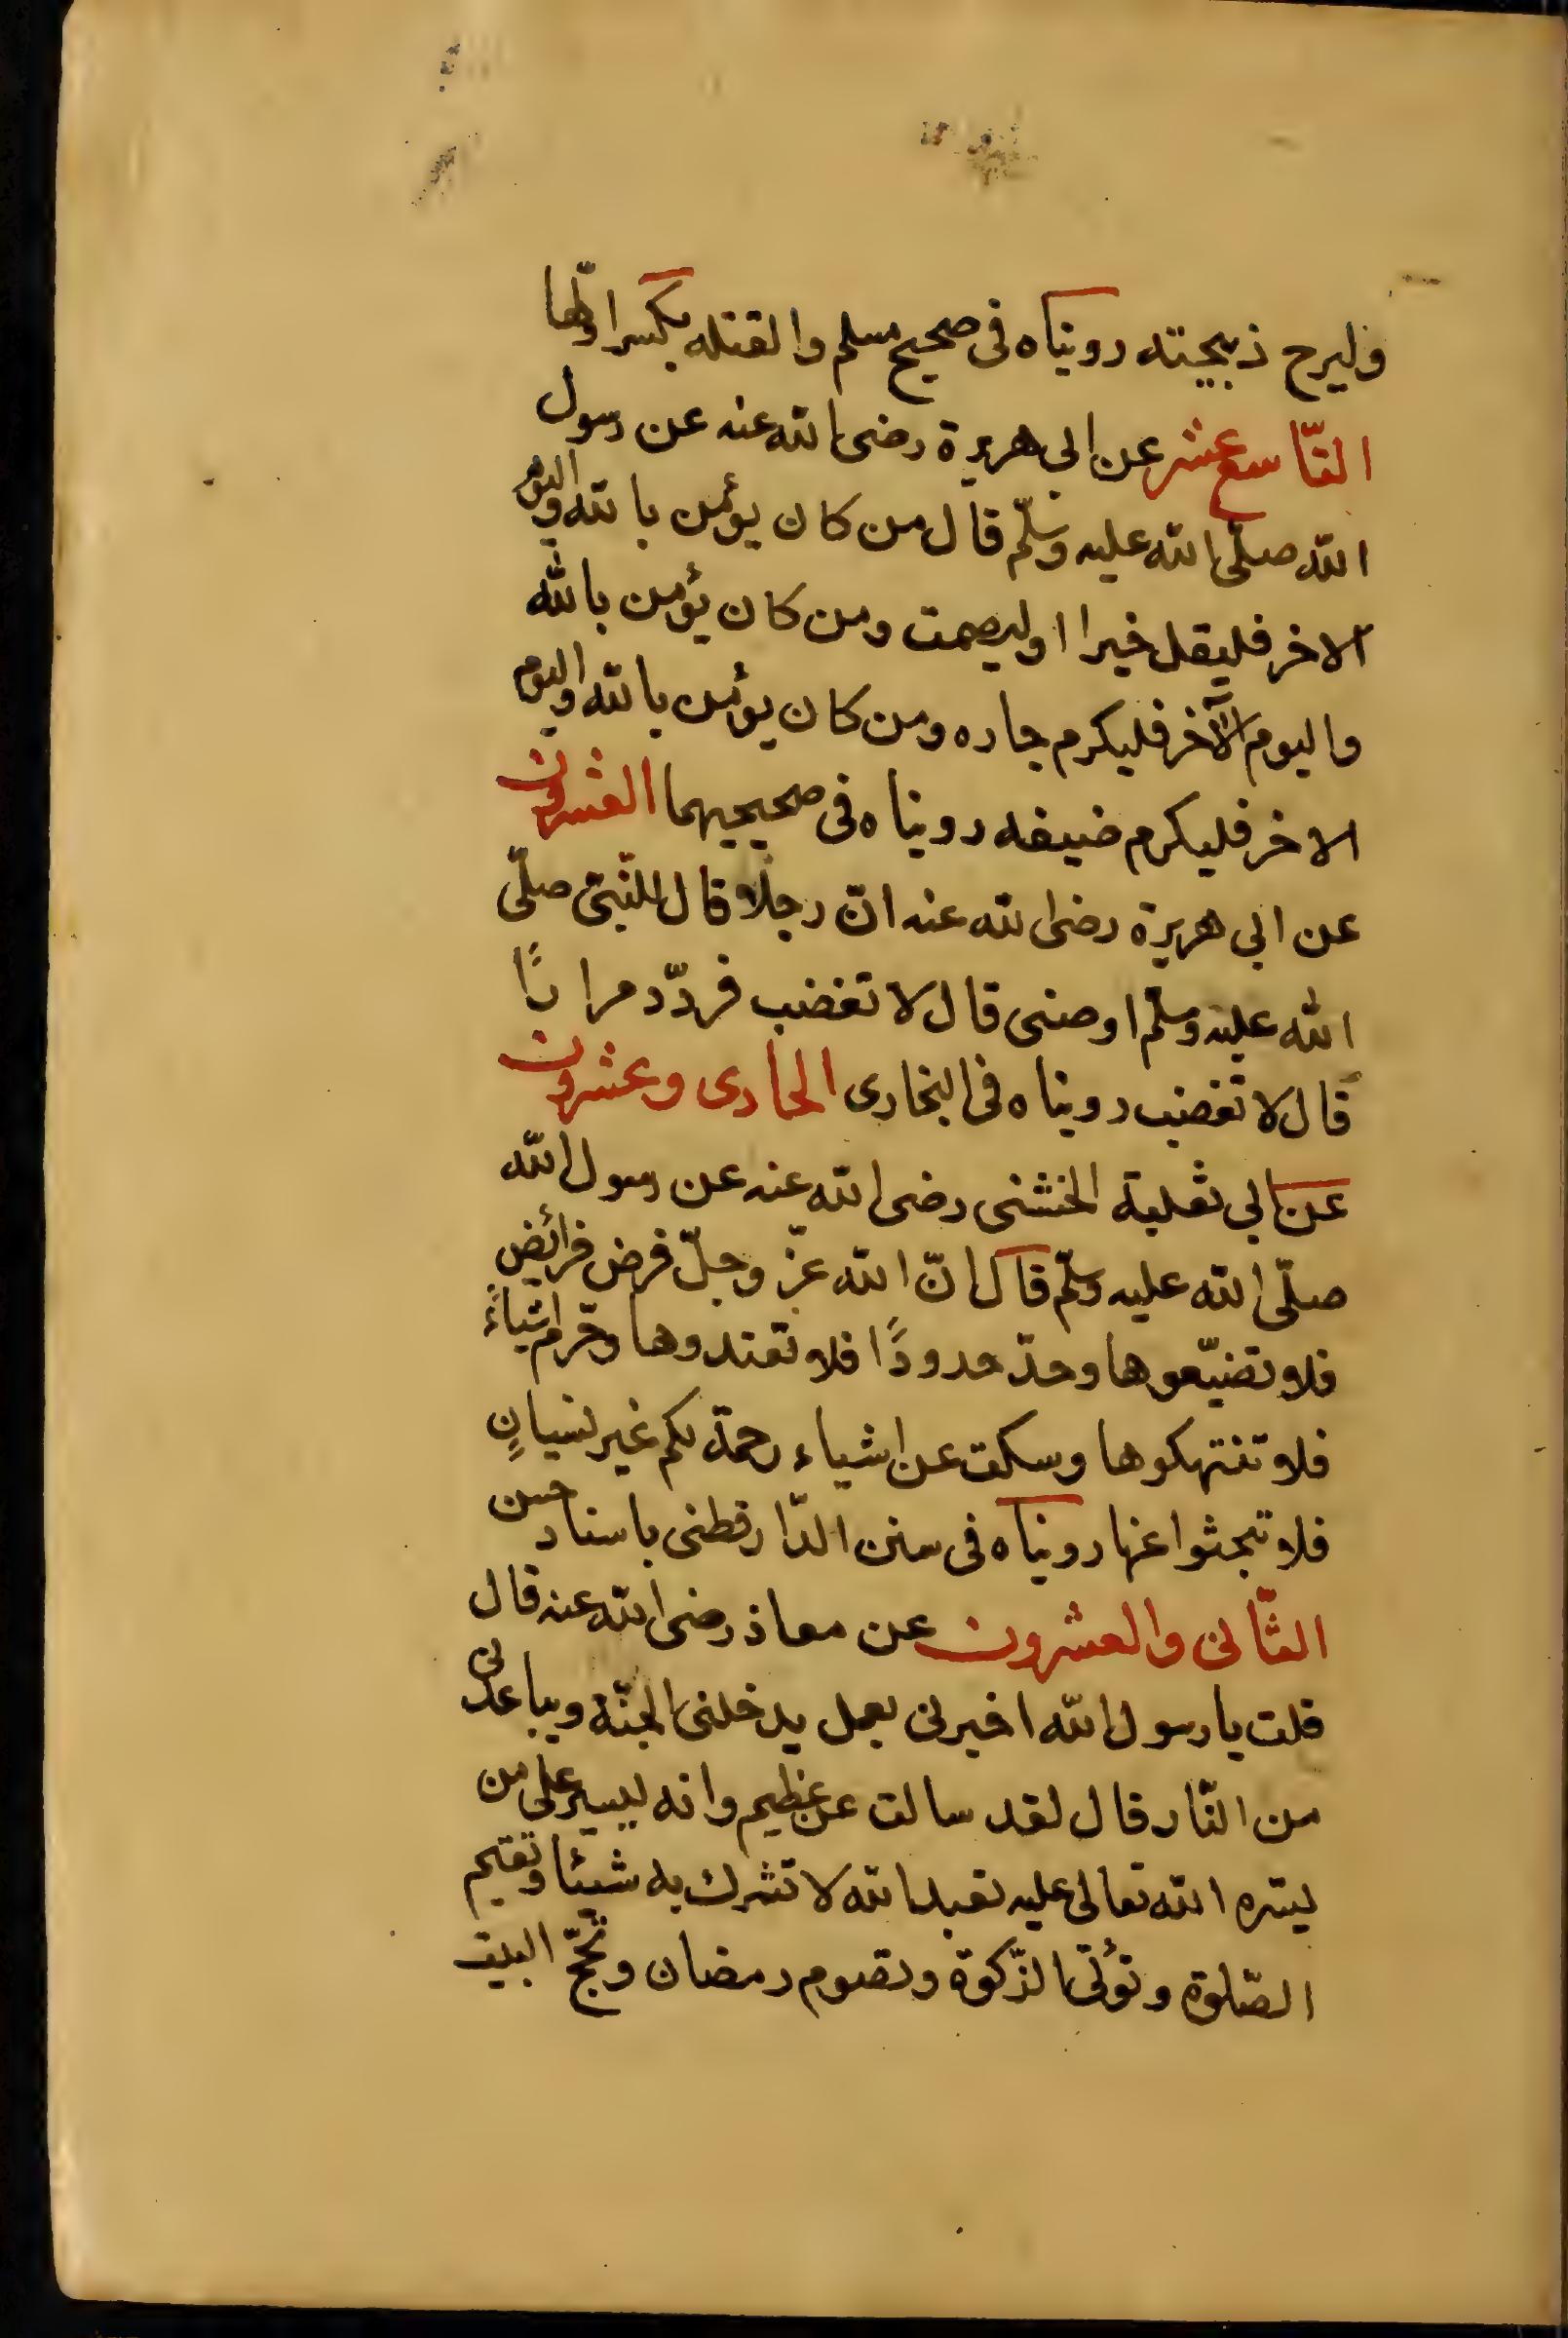 وليرح ذبيحته رويناه فى صحيح مسلم والقتله بكسر اوّلها
التّاسع عشر عن ابى هريرة رضى الله عنه عن رسول
الله صلّى الله عليه وسلّم قال من كان يؤمن بالله واليوم
الآخر فليقل خيرا اوليصمت ومن كان يؤمن بالله
واليوم الآخر فليكرم جاره ومن كان يؤمن بالله واليوم
الاخر فليكرم ضيفه رويناه فى صحيحيهما العشرون
عن ابى هريرة رضى الله عنه انّ رجلًا قال للنّبىّ صلّى
الله عليه وسلّم اوصنى قال لا تغضب فردّد مرارًا
قال لا تغضب رويناه فى البخارى الحادى وعشرون
عن ابى ثعلبة الخشنى رضى الله عنه عن رسول الله
صلّى الله عليه وسلّم قال انّ الله عزّ وجلّ فرض فرائض
فلا تضيّعوها وحدّ حدودًا فلا تعتدوها وحرّم اشياءً
فلا تنتهكوها وسكت عن اشياء رحمة لكم غير نسيانٍ
فلا تبحثوا عنها رويناه فى سنن الدّارقطنى باسناد حسن
الثّانى والعشرون عن معاذ رضى الله عنه قال
قلت يا رسول الله اخبرنى بعمل يدخلنى الجنّة ويباعدنى
من النّار قال لقد سالت عن عظيم وانه ليسير على من
يسّره الله تعالى عليه تعبد الله لا تشرك به شيئا وتقيم
الصّلوة وتؤتى الزّكوة وتصوم رمضان وتحجّ البيت